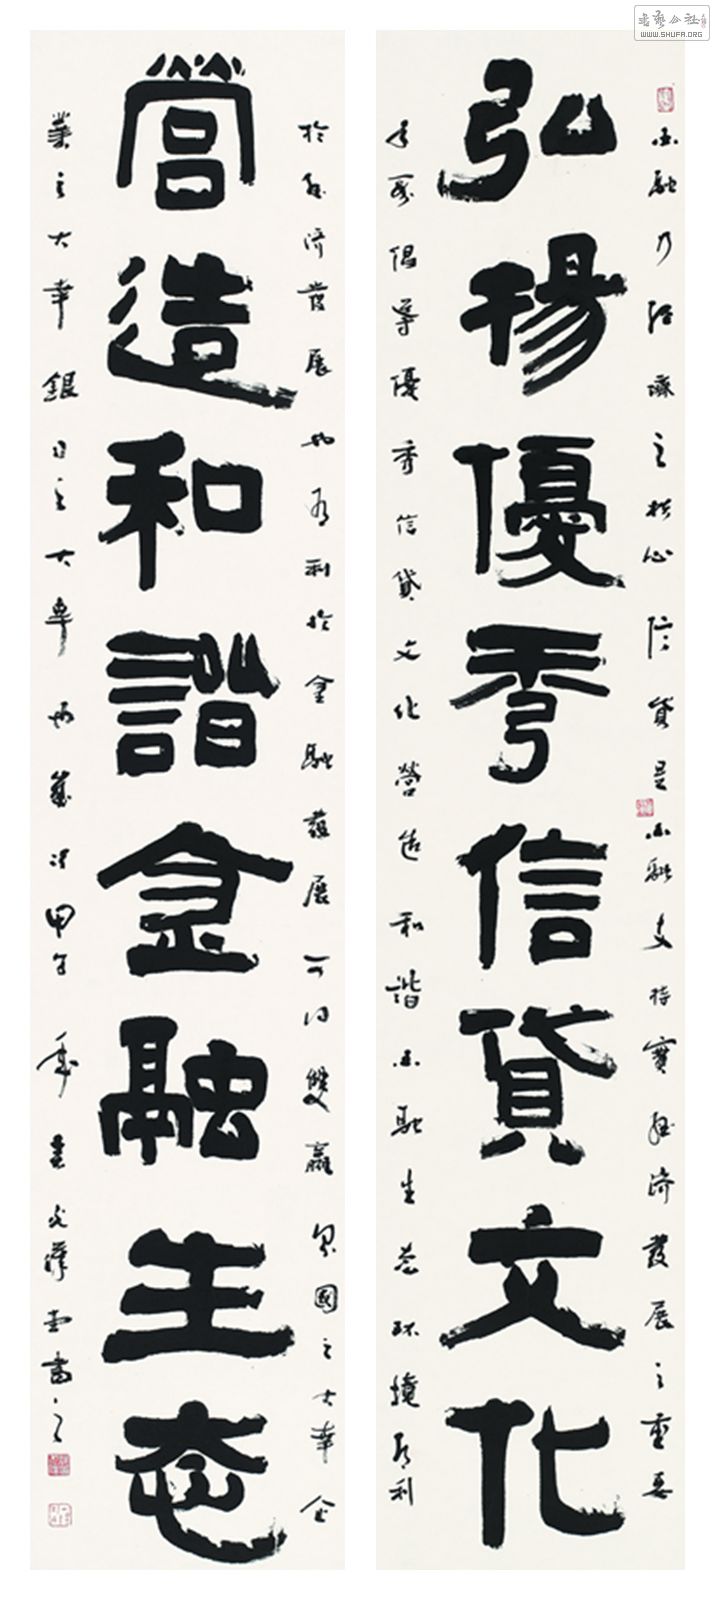 书艺公社
WWW.SHUFA.ORG
金融乃经濟之核心信貸是金融支持實经济發展之重要
弘揚優秀信貸文化
手段倡導優秀信貸文化營造和諧金融生态环境有利
於经济發展也有利於金融發展可謂雙贏國之大幸金
營造和諧金融生态
業之大幸銀行之大幸也歲次甲午書之